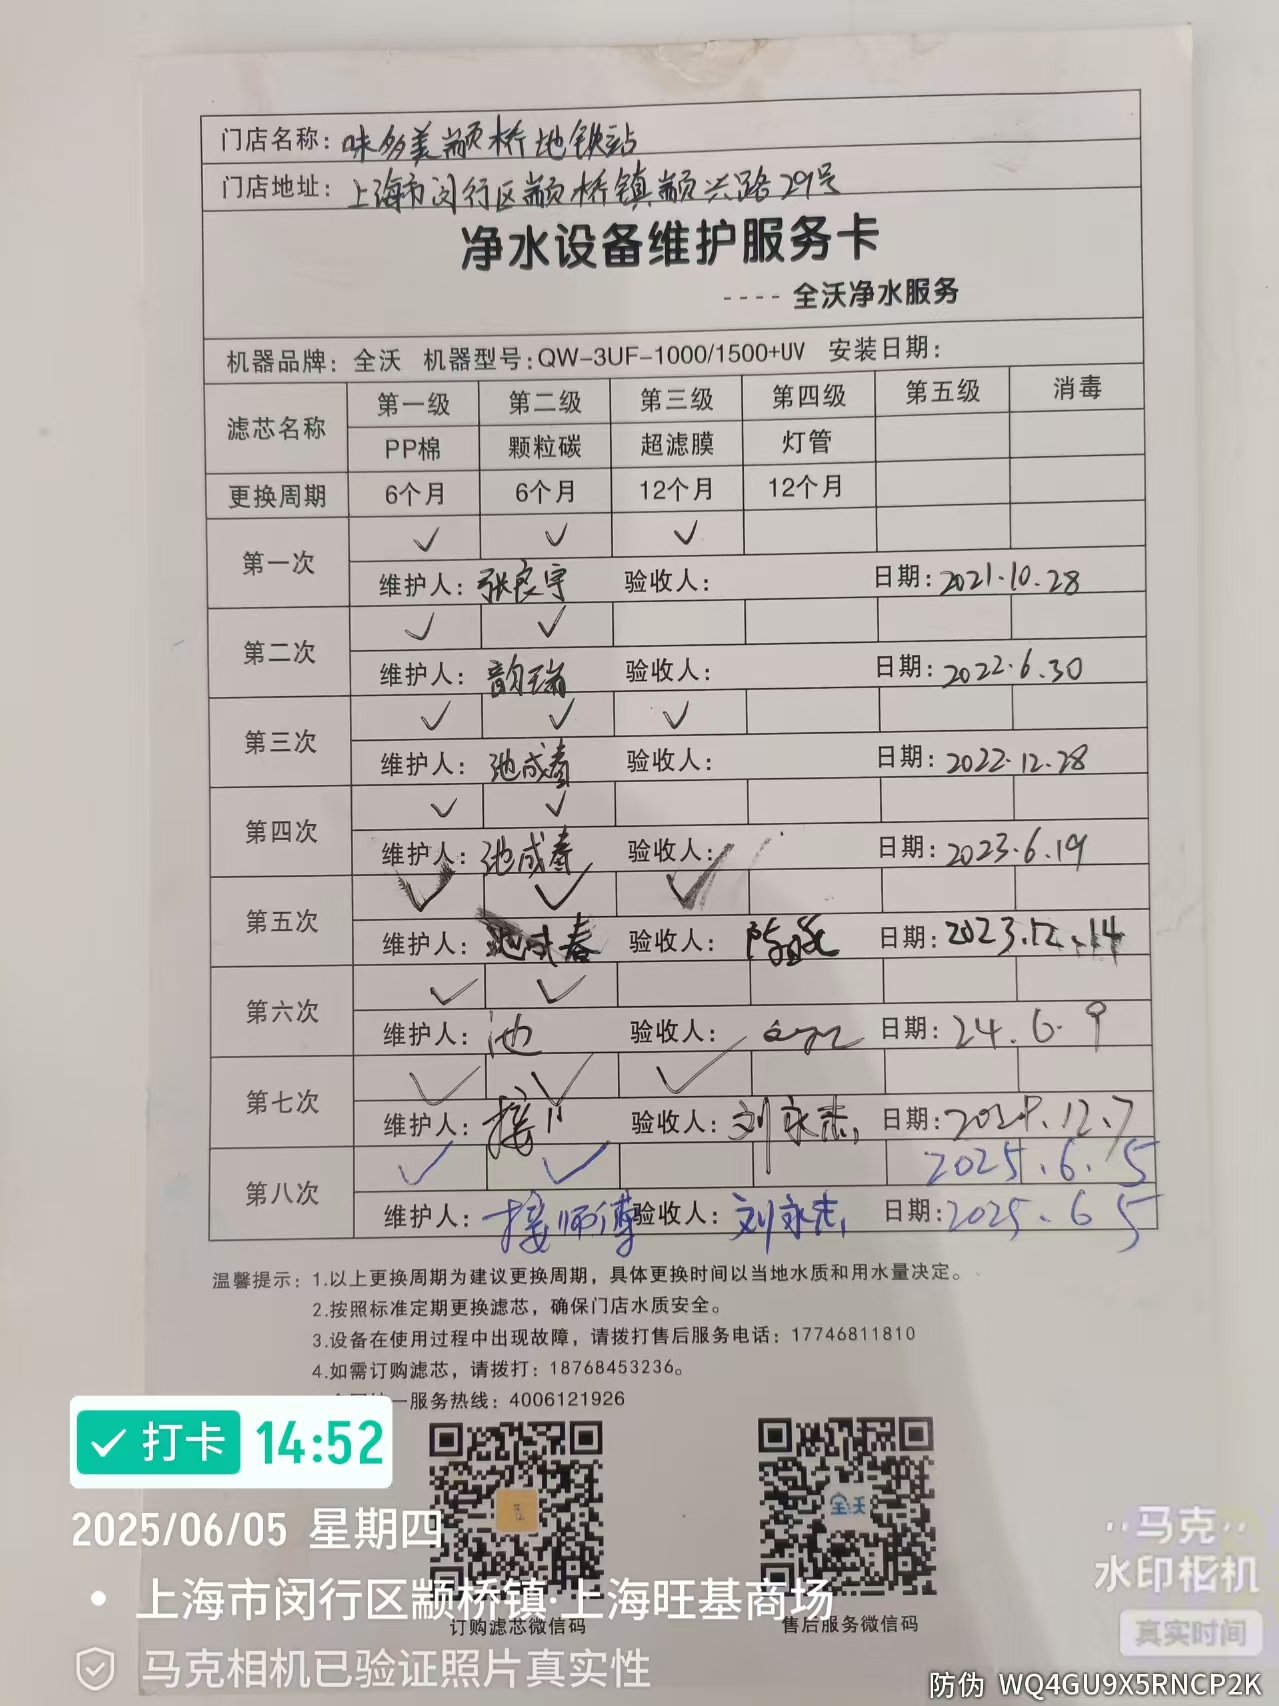 门店名称：味多美颛桥地铁站
门店地址：上海市闵行区颛桥镇颛兴路29号
净水设备维护服务卡
---- 全沃净水服务
机器品牌：全沃 机器型号：QW-3UF-1000/1500+UV 安装日期：
滤芯名称 第一级 第二级 第三级 第四级 第五级 消毒
PP棉 颗粒碳 超滤膜 灯管
更换周期 6个月 6个月 12个月 12个月
第一次 ✓ ✓ ✓
维护人：张良宇 验收人： 日期：2021.10.28
第二次 ✓ ✓
维护人： 验收人： 日期：2022.6.30
第三次 ✓ ✓ ✓
维护人：池成春 验收人： 日期：2022.12.28
第四次 ✓ ✓
维护人：池成春 验收人： 日期：2023.6.19
第五次 ✓ ✓ ✓
维护人：池成春 验收人： 日期：2023.12.14
第六次 ✓ ✓
维护人：池 验收人： 日期：24.6.9
第七次 ✓ ✓ ✓
维护人：接 验收人：刘永志 日期：2024.12.7
第八次 ✓ ✓ 2025.6.5
维护人：接师傅 验收人：刘永志 日期：2025.6.5
温馨提示：1.以上更换周期为建议更换周期，具体更换时间以当地水质和用水量决定。
2.按照标准定期更换滤芯，确保门店水质安全。
3.设备在使用过程中出现故障，请拨打售后服务电话：17746811810
4.如需订购滤芯，请拨打：18768453236。
一服务热线：4006121926
打卡 14:52
全沃
2025/06/05 星期四
上海市闵行区颛桥镇·上海旺基商场
订购滤芯微信码
售后服务微信码
马克相机已验证照片真实性
马克
水印相机
真实时间
防伪 WQ4GU9X5RNCP2K